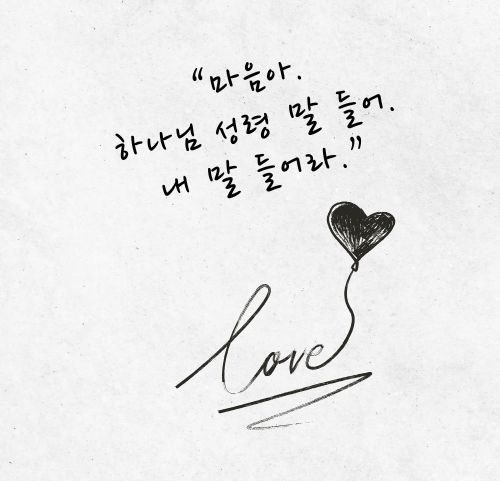 “마음아.
하나님 성령 말 들어.
내 말 들어라.”
love